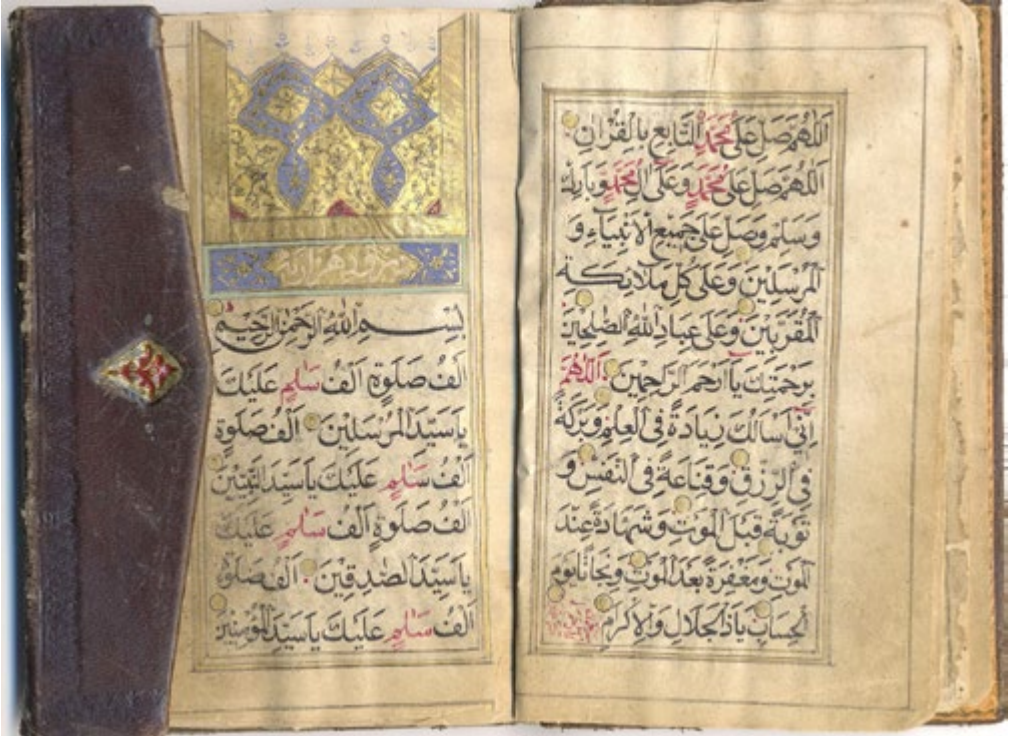 اَللّٰهُمَّ صَلِّ عَلٰى مُحَمَّدٍ التَّابِعِ بِالْقُرْاٰنِ
اَللّٰهُمَّ صَلِّ عَلٰى مُحَمَّدٍ وَعَلٰى اٰلِ مُحَمَّدٍ وَبَارِكْ
وَسَلِّمْ وَصَلِّ عَلٰى جَمِيْعِ الْاَنْبِيَاۤءِ وَ
الْمُرْسَلِيْنَ وَعَلٰى كُلِّ مَلَاۤئِكَةِ
الْمُقَرَّبِيْنَ وَعَلٰى عِبَادِ اللّٰهِ الصّٰلِحِيْنَ
بِرَحْمَتِكَ يَاۤ اَرْحَمَ الرَّاحِمِيْنَ اَللّٰهُمَّ
اِنِّيْ اَسْاَلُكَ زِيَادَةً فِي الْعِلْمِ وَبَرَكَةً
فِي الرِّزْقِ وَقَنَاعَةً فِي النَّفْسِ وَ
تَوْبَةً قَبْلَ الْمَوْتِ وَشَهَادَةً عِنْدَ
الْمَوْتِ وَمَغْفِرَةً بَعْدَ الْمَوْتِ وَنَجَاتًا يَوْمَ
الْحِسَابِ يَا ذَا الْجَلَالِ وَالْاِكْرَامِ
بِسْمِ اللّٰهِ الرَّحْمٰنِ الرَّحِيْمِ
اَلْفُ صَلٰوةٍ اَلْفُ سَلَامٍ عَلَيْكَ
يَا سَيِّدَ الْمُرْسَلِيْنَ اَلْفُ صَلٰوةٍ
اَلْفُ سَلَامٍ عَلَيْكَ يَا سَيِّدَ النَّبِيّٖنَ
اَلْفُ صَلٰوةٍ اَلْفُ سَلَامٍ عَلَيْكَ
يَا سَيِّدَ الصّٰدِقِيْنَ اَلْفُ صَلٰوةٍ
اَلْفُ سَلَامٍ عَلَيْكَ يَا سَيِّدَ الْمُؤْمِنِيْنَ